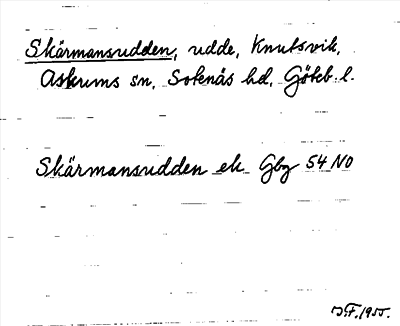 Skärmansudden, udde, Knutsvik,
Askums sn, Sotenäs hd, Göteb. l.
Skärmansudden ek Gbg 54 NO
1955.